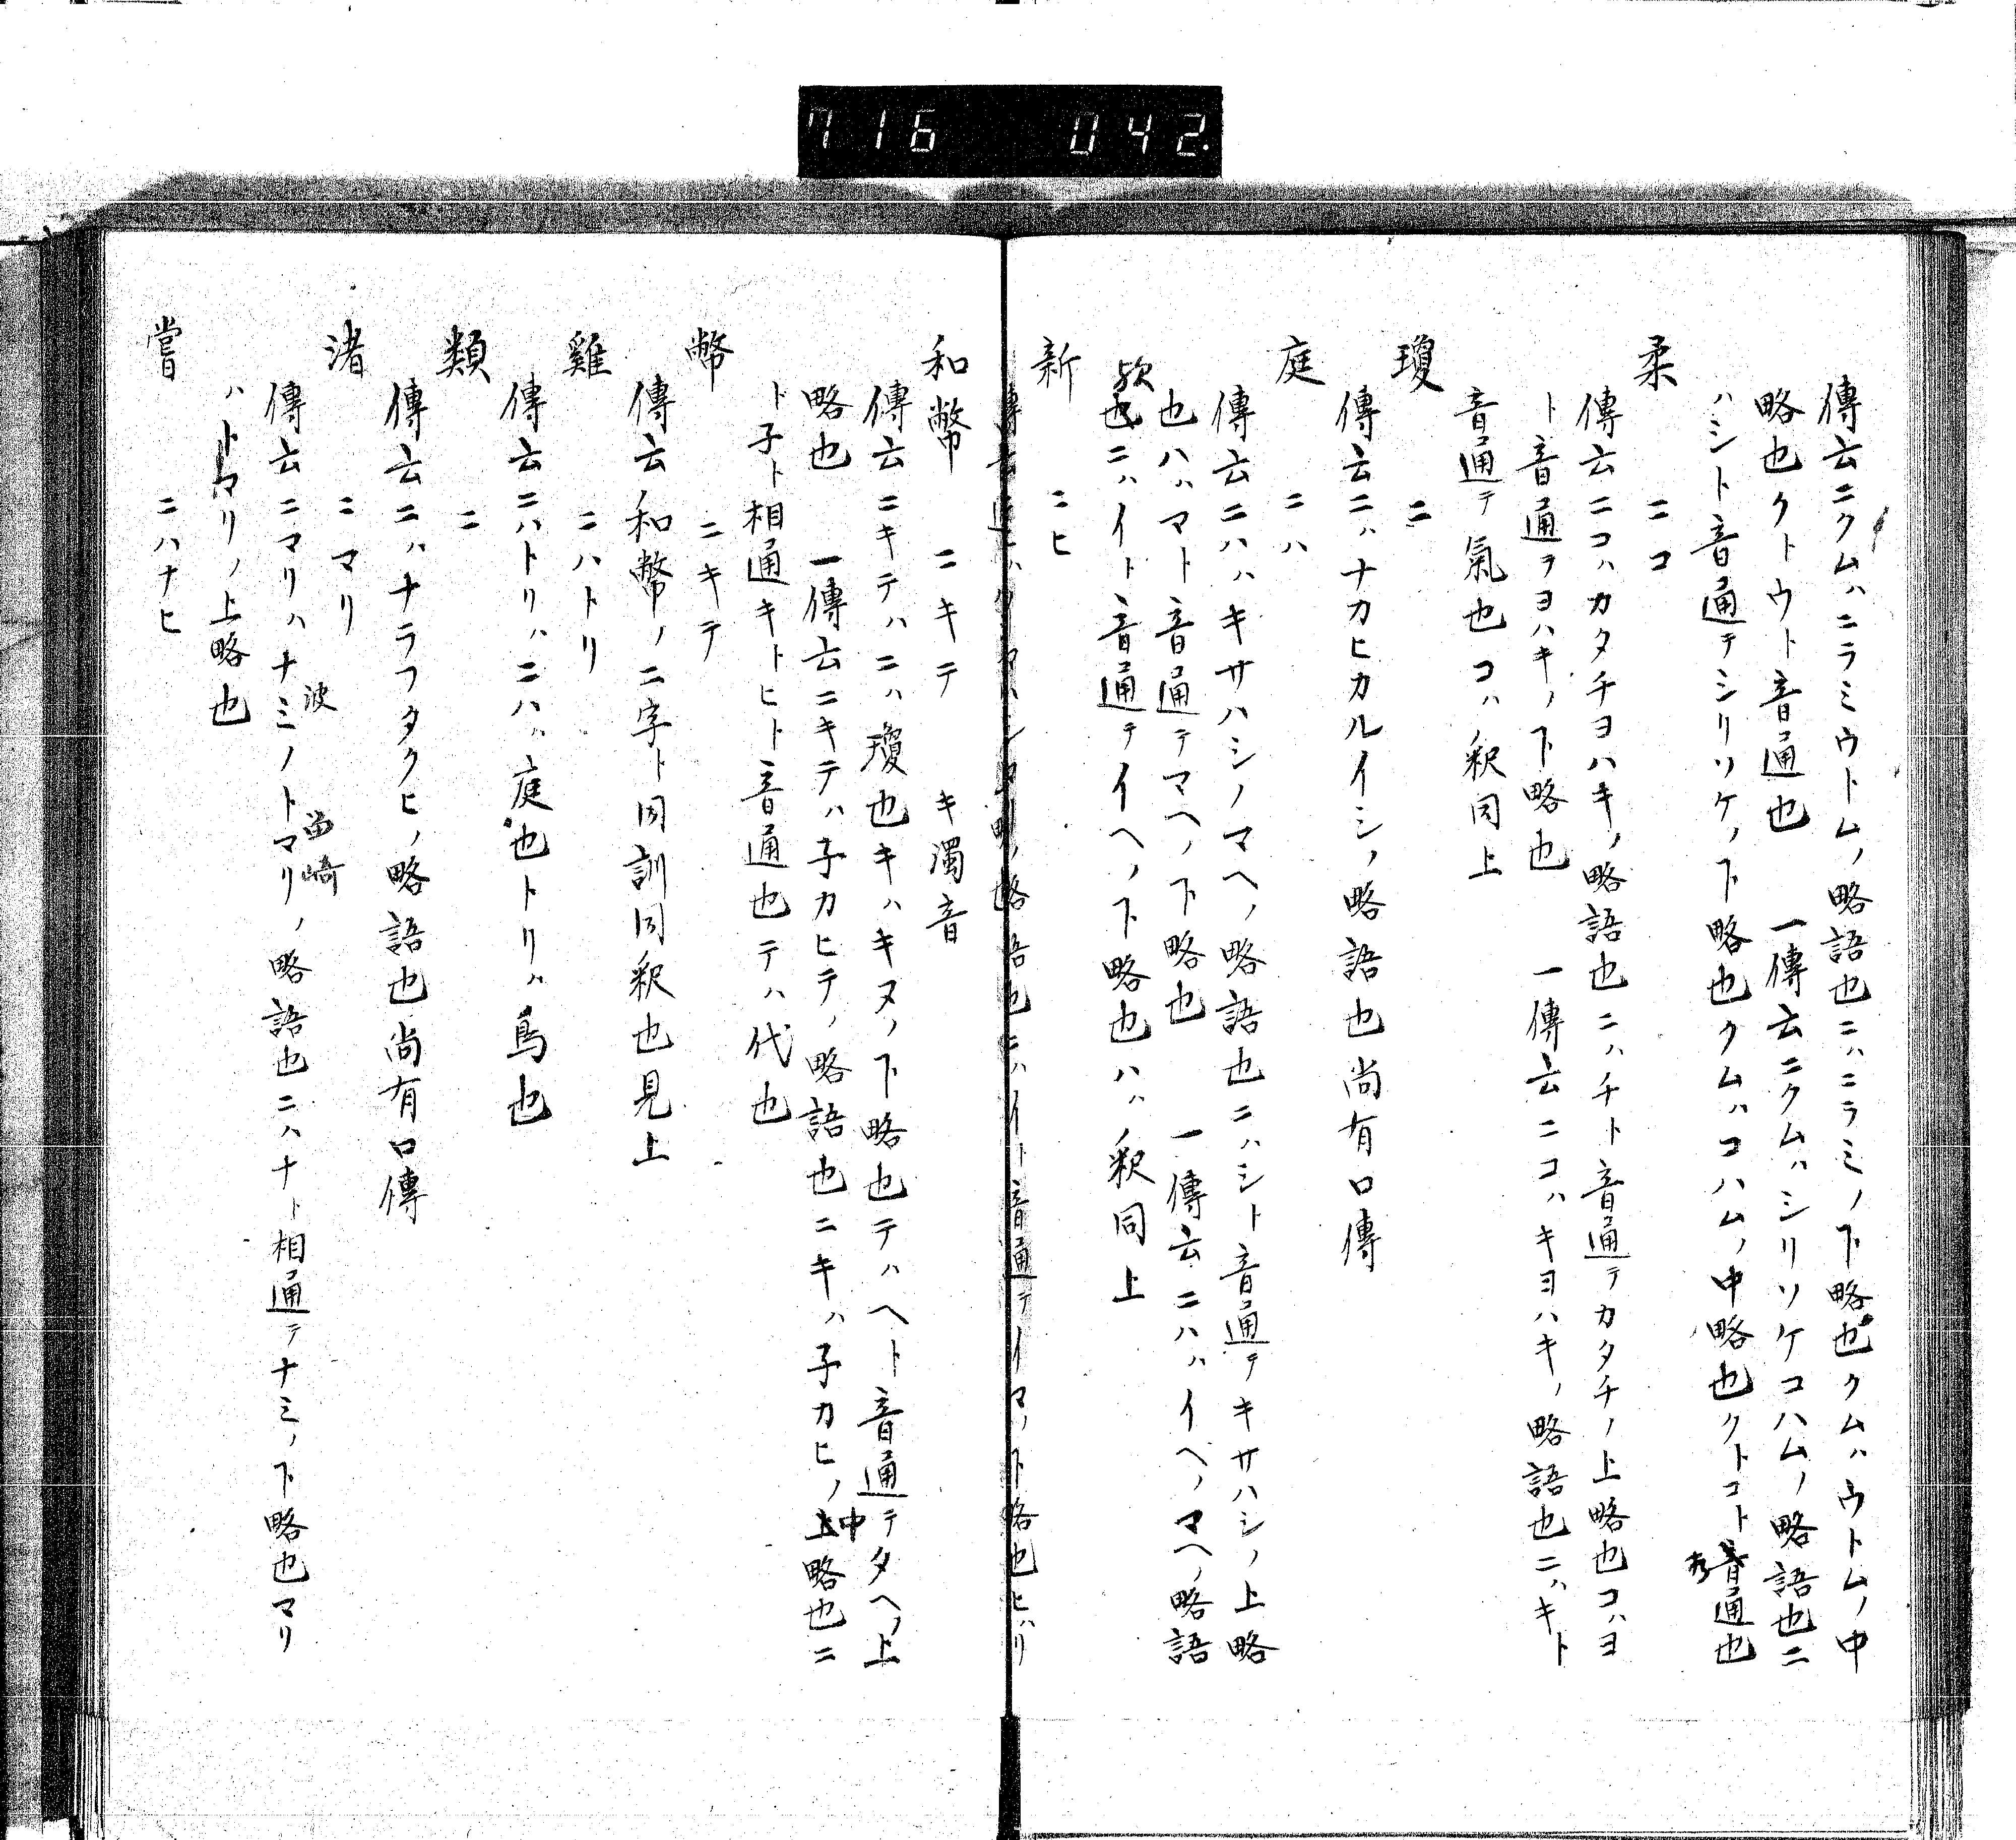 716 042
傳云ニクムハニラミウトムノ略語也ニハニラミノ下略也クムハウトムノ中
略也クトウト音通也 一傳云ニクムハシリソケコハムノ略語也ニ
ハシト音通テシリソケノ下略也クムハコハムノ中略也クトコト音通也
柔 ニコ
傳云ニコハカタチヨハキノ略語也ニハチト音通テカタチノ上略也コハヨ
ト音通ヲヨハキノ下略也 一傳云ニコハキヨハキノ略語也ニハキト
音通テ氣也コハ釈同上
瓊 ニ
傳云ニハナカヒカルイシノ略語也尚有口傳
庭 ニハ
傳云ニハハキサハシノマヘノ略語也ニハシト音通テキサハシノ上略
也ハハマト音通テマヘノ下略也 一傳云ニハハイヘノマヘノ略語
歟也ニハイト音通テイヘノ下略也ハハ釈同上
新 ニヒ
略語也ニハイト音通テイマノ下略也ヒハリ
和幣 ニキテ キ濁音
傳云ニキテハニハ瓊也キハキヌノ下略也テハヘト音通テタヘノ上
略也 一傳云ニキテハ子カヒテノ略語也ニキハ子カヒノ中略也ニ
ト子ト相通キトヒト音通也テハ代也
幣 ニキテ
傳云和幣ノ二字ト同訓同釈也見上
雞 ニハトリ
傳云ニハトリハニハハ庭也トリハ鳥也
類 ニ
傳云ニハナラフタクヒノ略語也尚有口傳
渚 ニマリ
傳云ニマリハナミノトマリノ略語也ニハナト相通テナミノ下略也マリ
波
ハトマリノ上略也
嘗 ニハナヒ